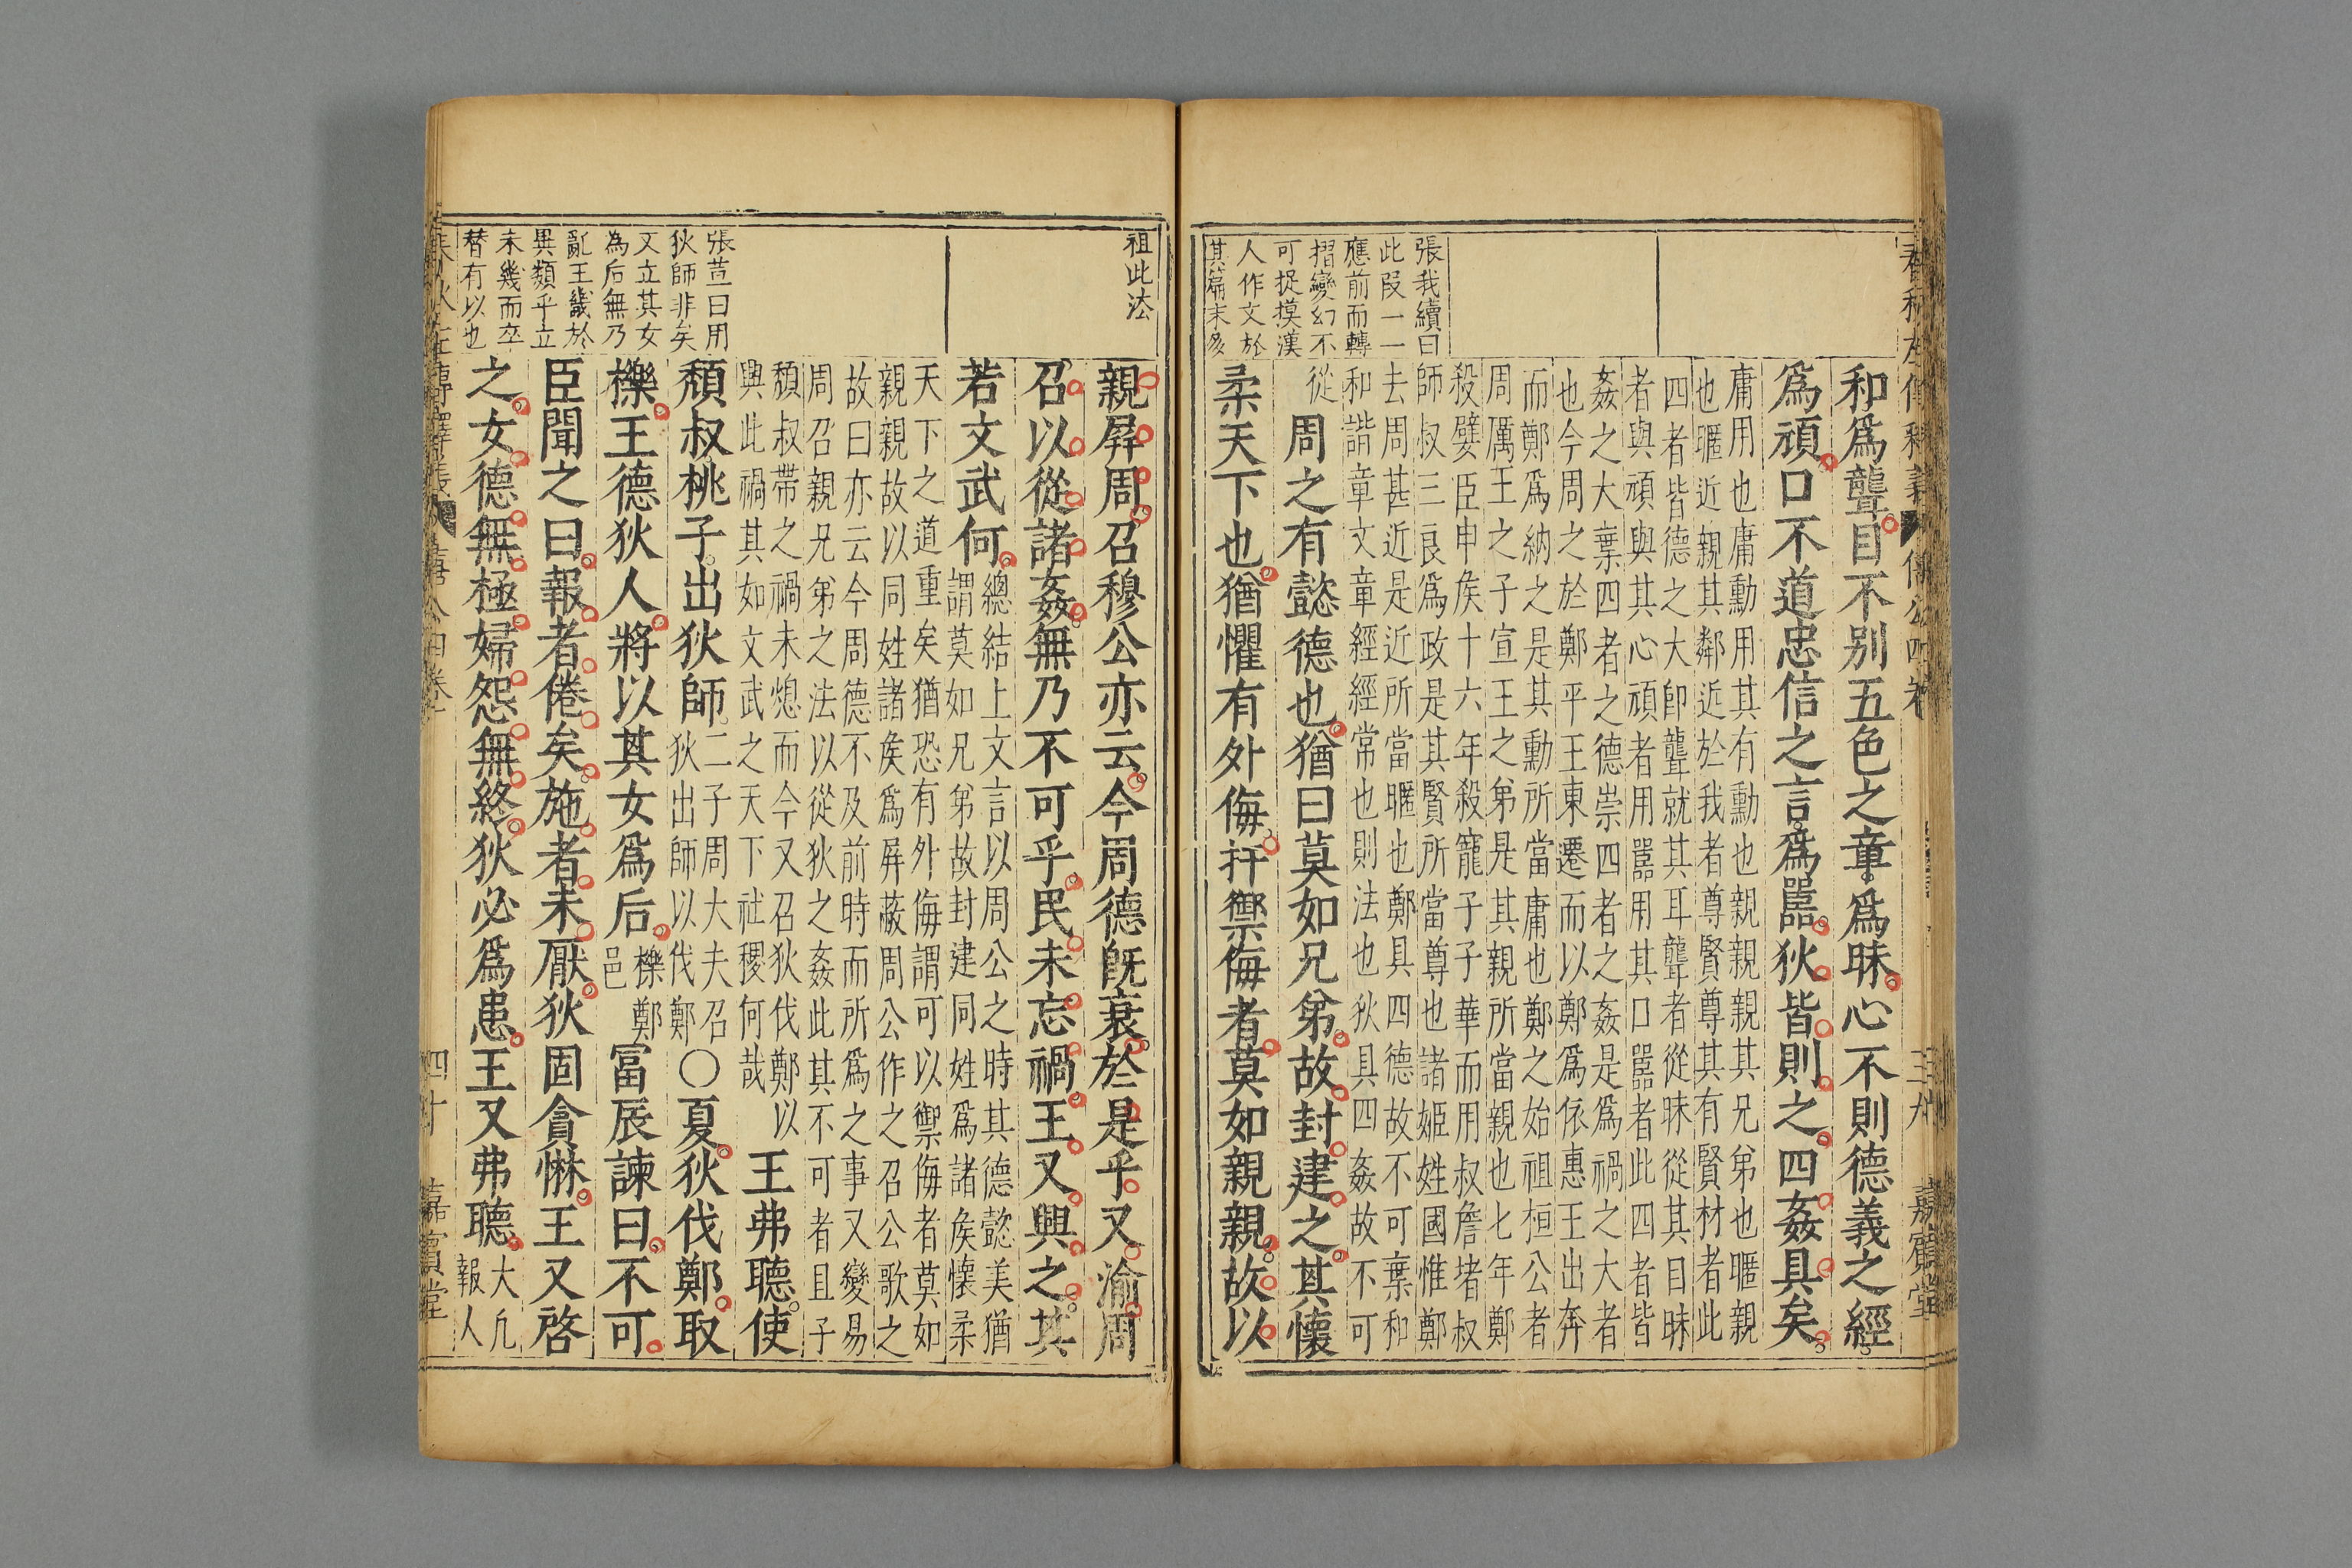 張我續曰
此段一一
應前而轉
摺變幻不
可捉摸漢
人作文於
其篇末多
和爲聾目不别五色之章爲昧心不則德義之經
爲頑口不道忠信之言爲嚚狄皆則之四姦具矣
庸用也庸勳用其有勳也親親親其兄弟也暱親
也暱近親其鄰近於我者尊賢尊其有賢材者此
四者皆德之大卽聾就其耳聾者從昧從其目昧
者與頑與其心頑者用嚚用其口嚚者此四者皆
姦之大棄四者之德崇四者之姦是爲禍之大者
也今周之於鄭平王東遷而以鄭爲依惠王出奔
而鄭爲納之是其勳所當庸也鄭之始祖桓公者
周厲王之子宣王之弟是其親所當親也七年鄭
殺嬖臣申侯十六年殺寵子子華而用叔詹堵叔
師叔三良爲政是其賢所當尊也諸姬姓國惟鄭
去周甚近是近所當暱也鄭具四德故不可棄和
和諧章文章經經常也則法也狄具四姦故不可
從
周之有懿德也猶曰莫如兄弟故封建之其懷
柔天下也猶懼有外侮扞禦侮者莫如親親故以
祖此法
張萱曰用
狄師非矣
又立其女
為后無乃
亂王畿於
異類乎立
未幾而卒
替有以也
親屏周召穆公亦云今周德旣衰於是乎又渝周
召以從諸姦無乃不可乎民未忘禍王又興之其
若文武何
總結上文言以周公之時其德懿美猶
謂莫如兄弟故封建同姓爲諸侯懷柔
天下之道重矣猶恐有外侮謂可以禦侮者莫如
親親故以同姓諸侯爲屏蔽周公作之召公歌之
故曰亦云今周德不及前時而所爲之事又變易
周召親兄弟之法以從狄之姦此其不可者且子
頹叔帶之禍未熄而今又召狄伐鄭以
與此禍其如文武之天下社稷何哉
王弗聽使
頹叔桃子出狄師
二子周大夫召
狄出師以伐鄭
〇夏狄伐鄭取
櫟王德狄人將以其女爲后
櫟鄭
邑
富辰諫曰不可
臣聞之曰報者倦矣施者未厭狄固貪惏王又啓
之女德無極婦怨無終狄必爲患王又弗聽
大凡
報人
四十
嘉賓堂